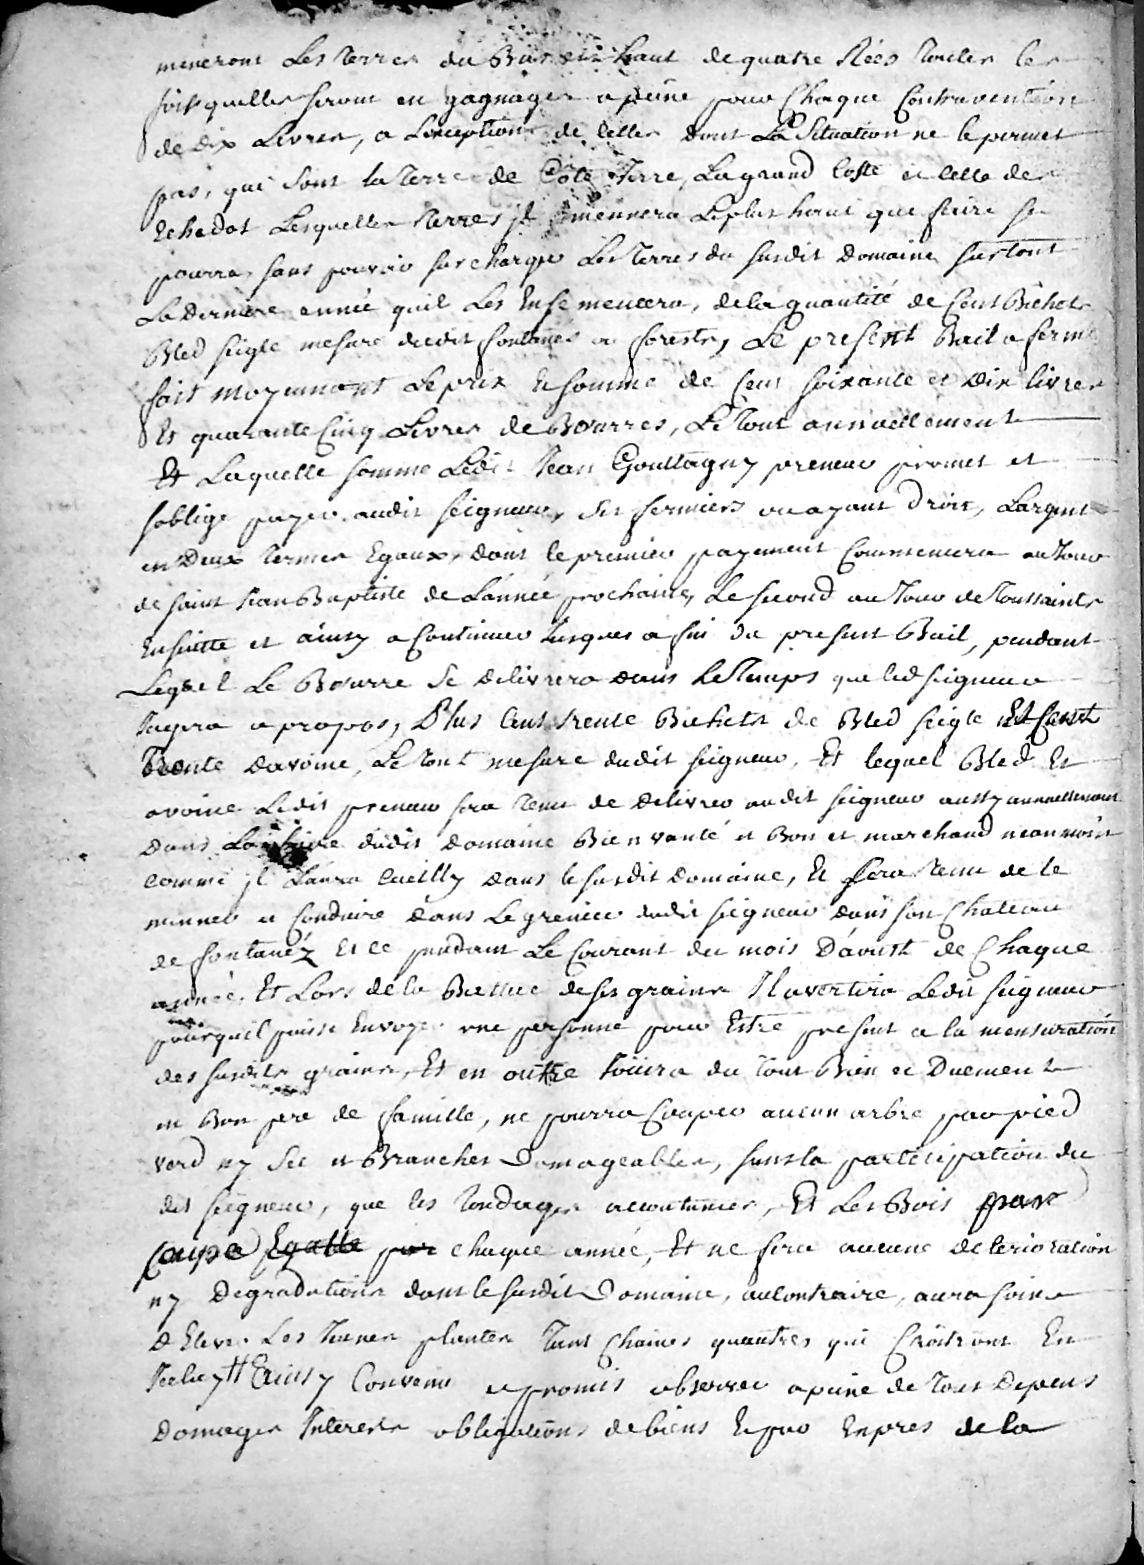 meneront Les terres du Bas en haut de quatre Rées toutes les
fois quelles seront en gagnages a peine pour Chaque Contravention
de dix Livres, a Lexception de celles dont La Situation ne le permet
pas, qui sont la terre de Côte terre, La grand Coste et celle de
Lesquelles terres jl emmenera Le plus haut que faire se
pourra, sans pouvoir surcharger Les terres du susdit Domaine surtout
La Derniere année quil Les Ensemencera, de la quantité de Cent Bichets
Bled seigle mesure dudit fontanes a forests, Le present Bail a ferme
fait moyennant Le prix et somme de Cent soixante et Dix livres
Et quarante Cinq Livres de Beurres, Le tout annuellement
Et Laquelle somme Ledit Jean Gouttagny preneur promet et
soblige payer audit seigneur, ses fermiers ou ayant Droit, Largent
en Deux termes Egaux, dont le premier payement Commencera au Jour
de saint Jean Baptiste de Lannée prochaine, Le second au Jour de toussaints
Ensuitte et ainsy a Continuer Jusques a fin du present Bail, pendant
Lequel Le Beurre se delivrera dans le temps que led seigneur
Jugera a propos, Plus Cent trente Bichets de Bled seigle Et Cent
trente davoine, Le tout mesure dudit seigneur, Et lequel Bled Et
avoine Ledit preneur sera tenu de delivrer audit seigneur aussy annuellement
Dans dudit domaine Bien vanté et Bon et marchand neanmoins
comme jl Laura Cueilly dans le susdit Domaine, Et sera tenu de le
menner et Conduire dans Le grenier dudit seigneur dans son Chateau
de fontanéz Et ce pendant Le Courant du mois Daoust de Chaque
année, Et Lors de la Battue de ses grains Il avertira Ledit seigneur
pour quil puisse Envoyer une personne pour Estre present a la mensuration
des susdits grains, Et en outre Joüira du tout Bien et Duement
en Bon pere de famille, ne pourra Couper aucun arbre par pied
verd ny sec et Branches Domageables, sans la participation du
dit seigneur, que les tondages accoutumés, Et Les Bois par
Coupe Egalle par chaque année, Et ne fera aucune deterioration
ny Degradations dans le susdit Domaine, au Contraire, aura soin
d Elever Les Jeunes plantes tant Chaines quautres qui Croîtront En
Jceluy Ainsy Convenu et promis observer a peine de tous Depens
Domages Interests obligations de biens Et par Expres de la